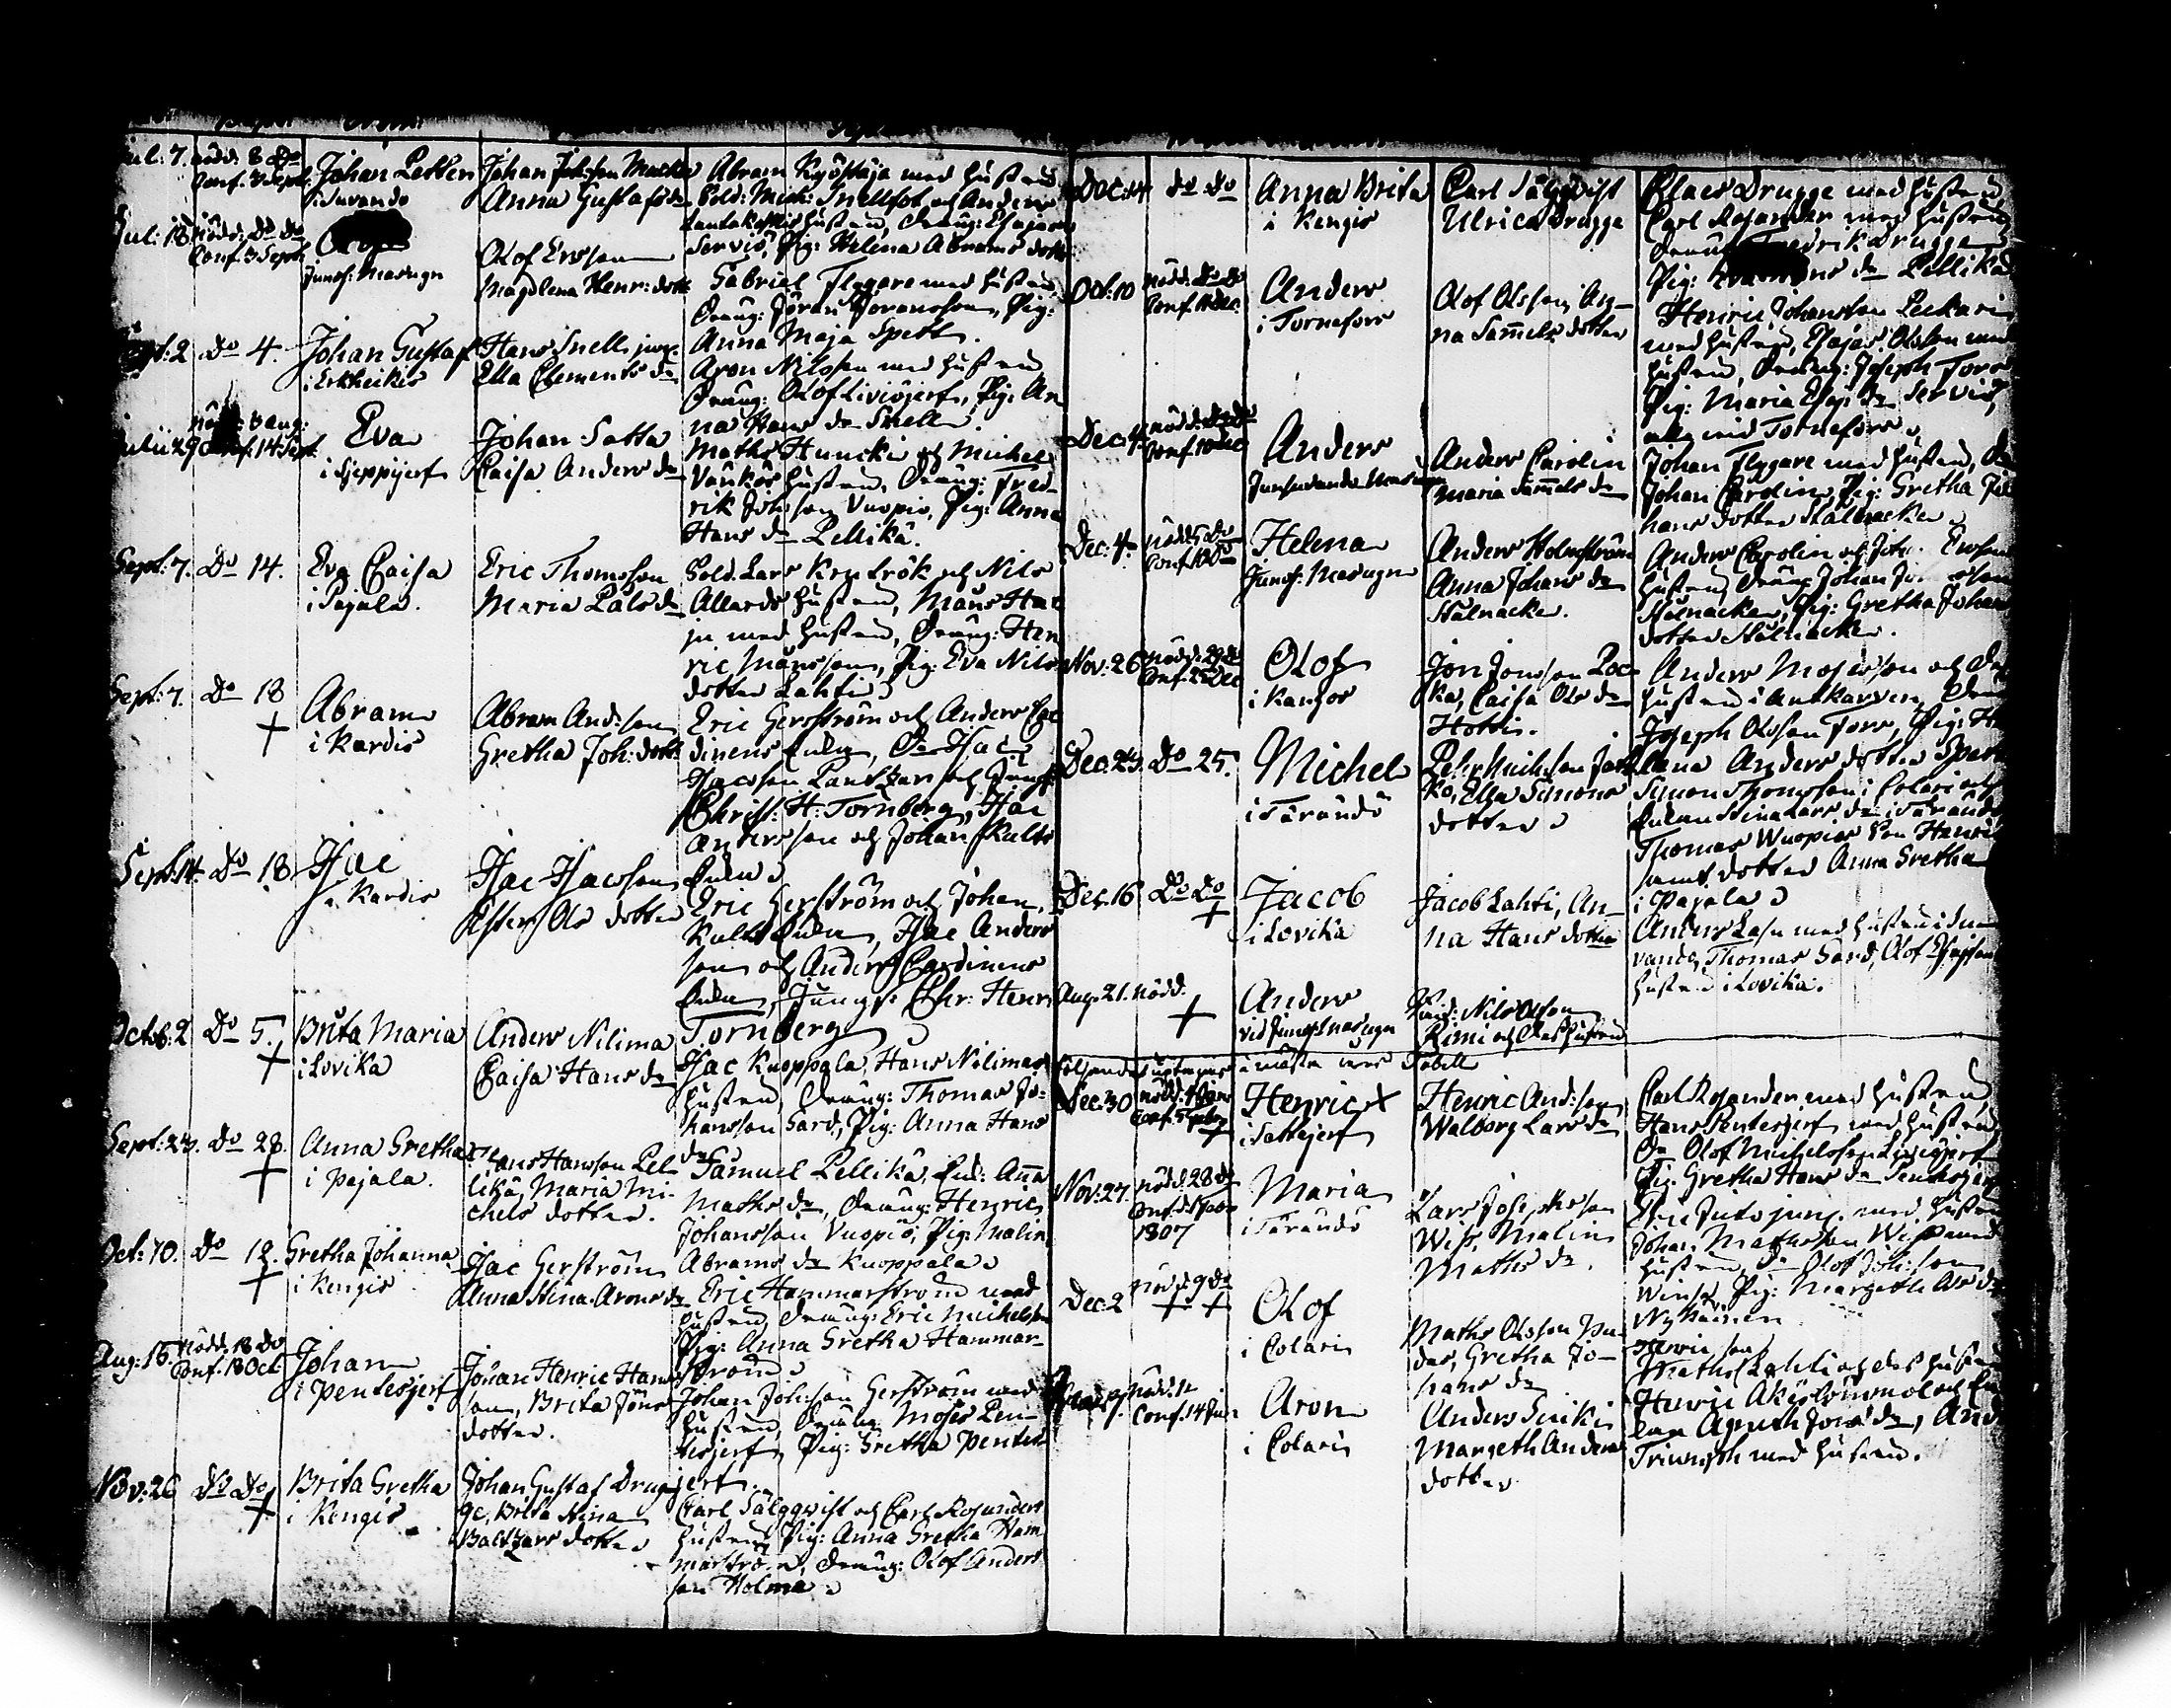 Jul: 7. nödd: 8 Do Conf. 3 Sept.
Johan Petter
i Juvando
Johan Johsson Macka
Anna Gustafs dr
Abram Kyöstäjä med hustru
Sold: Mich: Snellfot och Anders
Lantakoskis hustru, Dräng: Esajas
Serviö, Pig: Helena Abrams dotter
Jul: 18 nödd: Do Do Conf. 3 Sept.
Olof
Junos: Masugn
Olof Ersson
Magdlena Henr: dott
Gabriel Flygare med hustru
Dräng: Jöran Joransson, Pig:
Anna Maja Spett.
Sept: 2 Do 4.
Johan Gustaf
i Erkheikis
Hans Snell jun:
Ella Clements dr
Aron Nilsson med hustru
Dräng: Olof Liviöjerf, Pig: An
na Hans dr Snell.
Julii 29 nödd: 3 aug: Conf. 14 Sept.
Eva
i Sjeppijerf
Johan Satta
Caisa Anders dr
Maths Huncki och Michel
hustru, Dräng: Fred
rik Johsson Vuopio, Pig: Anna
Hans dr Pellikä.
Sept: 7. Do 14.
Eva Caisa
i Pajala.
Eric Thomsson
Maria Påls dr
Sold. Lars Krutrök och Nils
Allards hustru, Måns Har
ju med hustru, Dräng: Hen
ric Månsson, Pig: Eva Nils
dotter Lahti
Sept: 7. Do 18
Abram
i Kardis
Abram And:son
Gretha Joh: dott:
Eric Gerström och Anders Car
dinens Enka, Dr Isac
Isacsson Lantzan och Jungf
Christ: H: Tornberg, Isac
Andersson och Johan Kults
Enka
Sept. 14. Do 18
Isac
i Kardis
Isac Isacsson
Ester Ols dotter
Eric Gerström och Johan
Kults Enka, Isac Anders
son och Anders Cardinens
Enka, Jungf: Chr: Henr:
Tornberg
Octob: 2 Do 5.
Brita Maria
i Lovika
Anders Nilima
Caisa Hans dr
Isac Kuoppala, Hans Nilimas
hustru, Dräng: Thomas Jo-
hansson Sard, Pig: Anna Hans
dr
Sept: 23. Do 28.
Anna Gretha
i Pajala.
Hans Hansson Pel
likä, Maria Mi-
chels dotter.
Samuel Pellikä, Enk: Anna
Maths dr, Dräng: Henric
Johansson Vuopio, Pig: Malin
Abrams dr Kuoppala
Oct: 10. Do 12.
Gretha Johanna
i Kengis
Isac Gerström
Anna Stina Arons dr
Eric Hammarström med
hustru, Dräng: Eric Michelsson
Pig: Anna Gretha Hammar-
ström
Aug: 15. nödd 18 Do Conf. 18 Oct
Johan
i Pentesjerf
Johan Henric Hans
son, Brita Jöns
dotter.
Johan Johsson Gerström med
hustru, Dräng: Moses Pen-
tesjerf, Pig: Gretha Pentes
jerf.
Nov: 26 Do Do
Brita Gretha
i Kengis
Johan Gustaf Drug
ge, Brita Stina
Baltzars dotter
Carl Sälgqvist och Carl Rosanders
hustru, Pig: Anna Gretha Ham
marström, Dräng: Olof Anders
son Holma
Dec: 14 Do Do
Anna Brita
i Kengis
Carl Sälgqvist
Ulrica Drugge
Claes Drugge med hustru
Carl Rosander med hustru
Dräng Fredrik Drugge
Pig: dr Pellikä
Oct: 10 nödd: Do Do Conf. 11 Dec.
Anders
i Tornefors
Olof Olsson, An-
na Samuels dotter
Henric Johansson Peckari
med hustru, Esajas Olsson med
hustru, Dräng: Joseph Fors
Pig: Maria Esaj: dr Serviö,
alla vid Tornefors
Dec: 4. nödd: Do Do Conf. 10 Dec
Anders
Junosuando Masugn
Anders Carolin
Maria Samuels dr
Johan Flygare med hustru, Dr
Johan Carolin, Pig: Gretha Jo
hans dotter Stålnacke
Dec: 4. nödd 5 Do Conf. 10 Do
Helena
Junos: Masugn
Anders Holmström
Anna Johans dr
Stålnacke.
Anders Carolin och Joh. Ersson
hustru, Dräng Johan
Stålnacke, Pig: Gretha Johans
dotter Stålnacke.
Nov: 26 nödd: 29 Do Conf. 25 Dec
Olof
i Kangos
Jon Jonsson Loc
ka, Caisa Ols dr
Hotti.
Anders Mosesson och
hustru i Autkarven,
Joseph Olsson Fors, Pig: He
lena Anders dotter Spett
Dec: 23. Do 25.
Michel
i Tärändö
Pehr Michsson
Ella Simons
dotter
Simon Thomsson i Colari och
Enkan Stina Lars dr i Tärändö
Thomas Wuopios Son Henric
samt dotter Anna Gretha
i Pajala
Dec. 16 Do Do
Jacob
i Lovika
Jacob Lahti, An-
na Hans dotter
Anders Lasu med hustru i Juno
vando, Thomas Sard, Olof Esajsson
hustru i Lovika.
Aug: 21. nödd.
Anders
vid Junos: masugn
Nils Olsson
Rimi och des hustru
Följande uptages i nästa års Tabell
Dec: 30 nödd: 4 Janr Conf. 5 Febr
Henric
i Sattajerf
Henric And:son
Walborg Lars dr
Carl Rosander med hustru
Hans Pentesjerf med hustru
Dr Olof Michelsson Liviöjerf
Pig: Gretha Hans dr Pentesjerf
Nov: 27. nödd. 28 Do Conf. 1807
Maria
i Tärändö
Lars Josephsson
Wiss, Malin
Maths dr.
Eric Juto jun:. med hustru
Johan Mathsson Wiss med
hustru, Dr Olof Joh:son
Winsa, Pig: Margeth Ols dr
Nykänen
Dec: 2 nödd. 9 Do
Olof
i Colari
Maths Olsson Pu-
das, Gretha Jo-
hans dr
Henricsson
Maths Lahti och des hustru
Henric Akäslompolo och En
kan Agneth Jons dr, And
Triumph med hustru.
nödd. 11 Conf. 14
Aron
i Colari
Anders
Margeth Anders
dotter